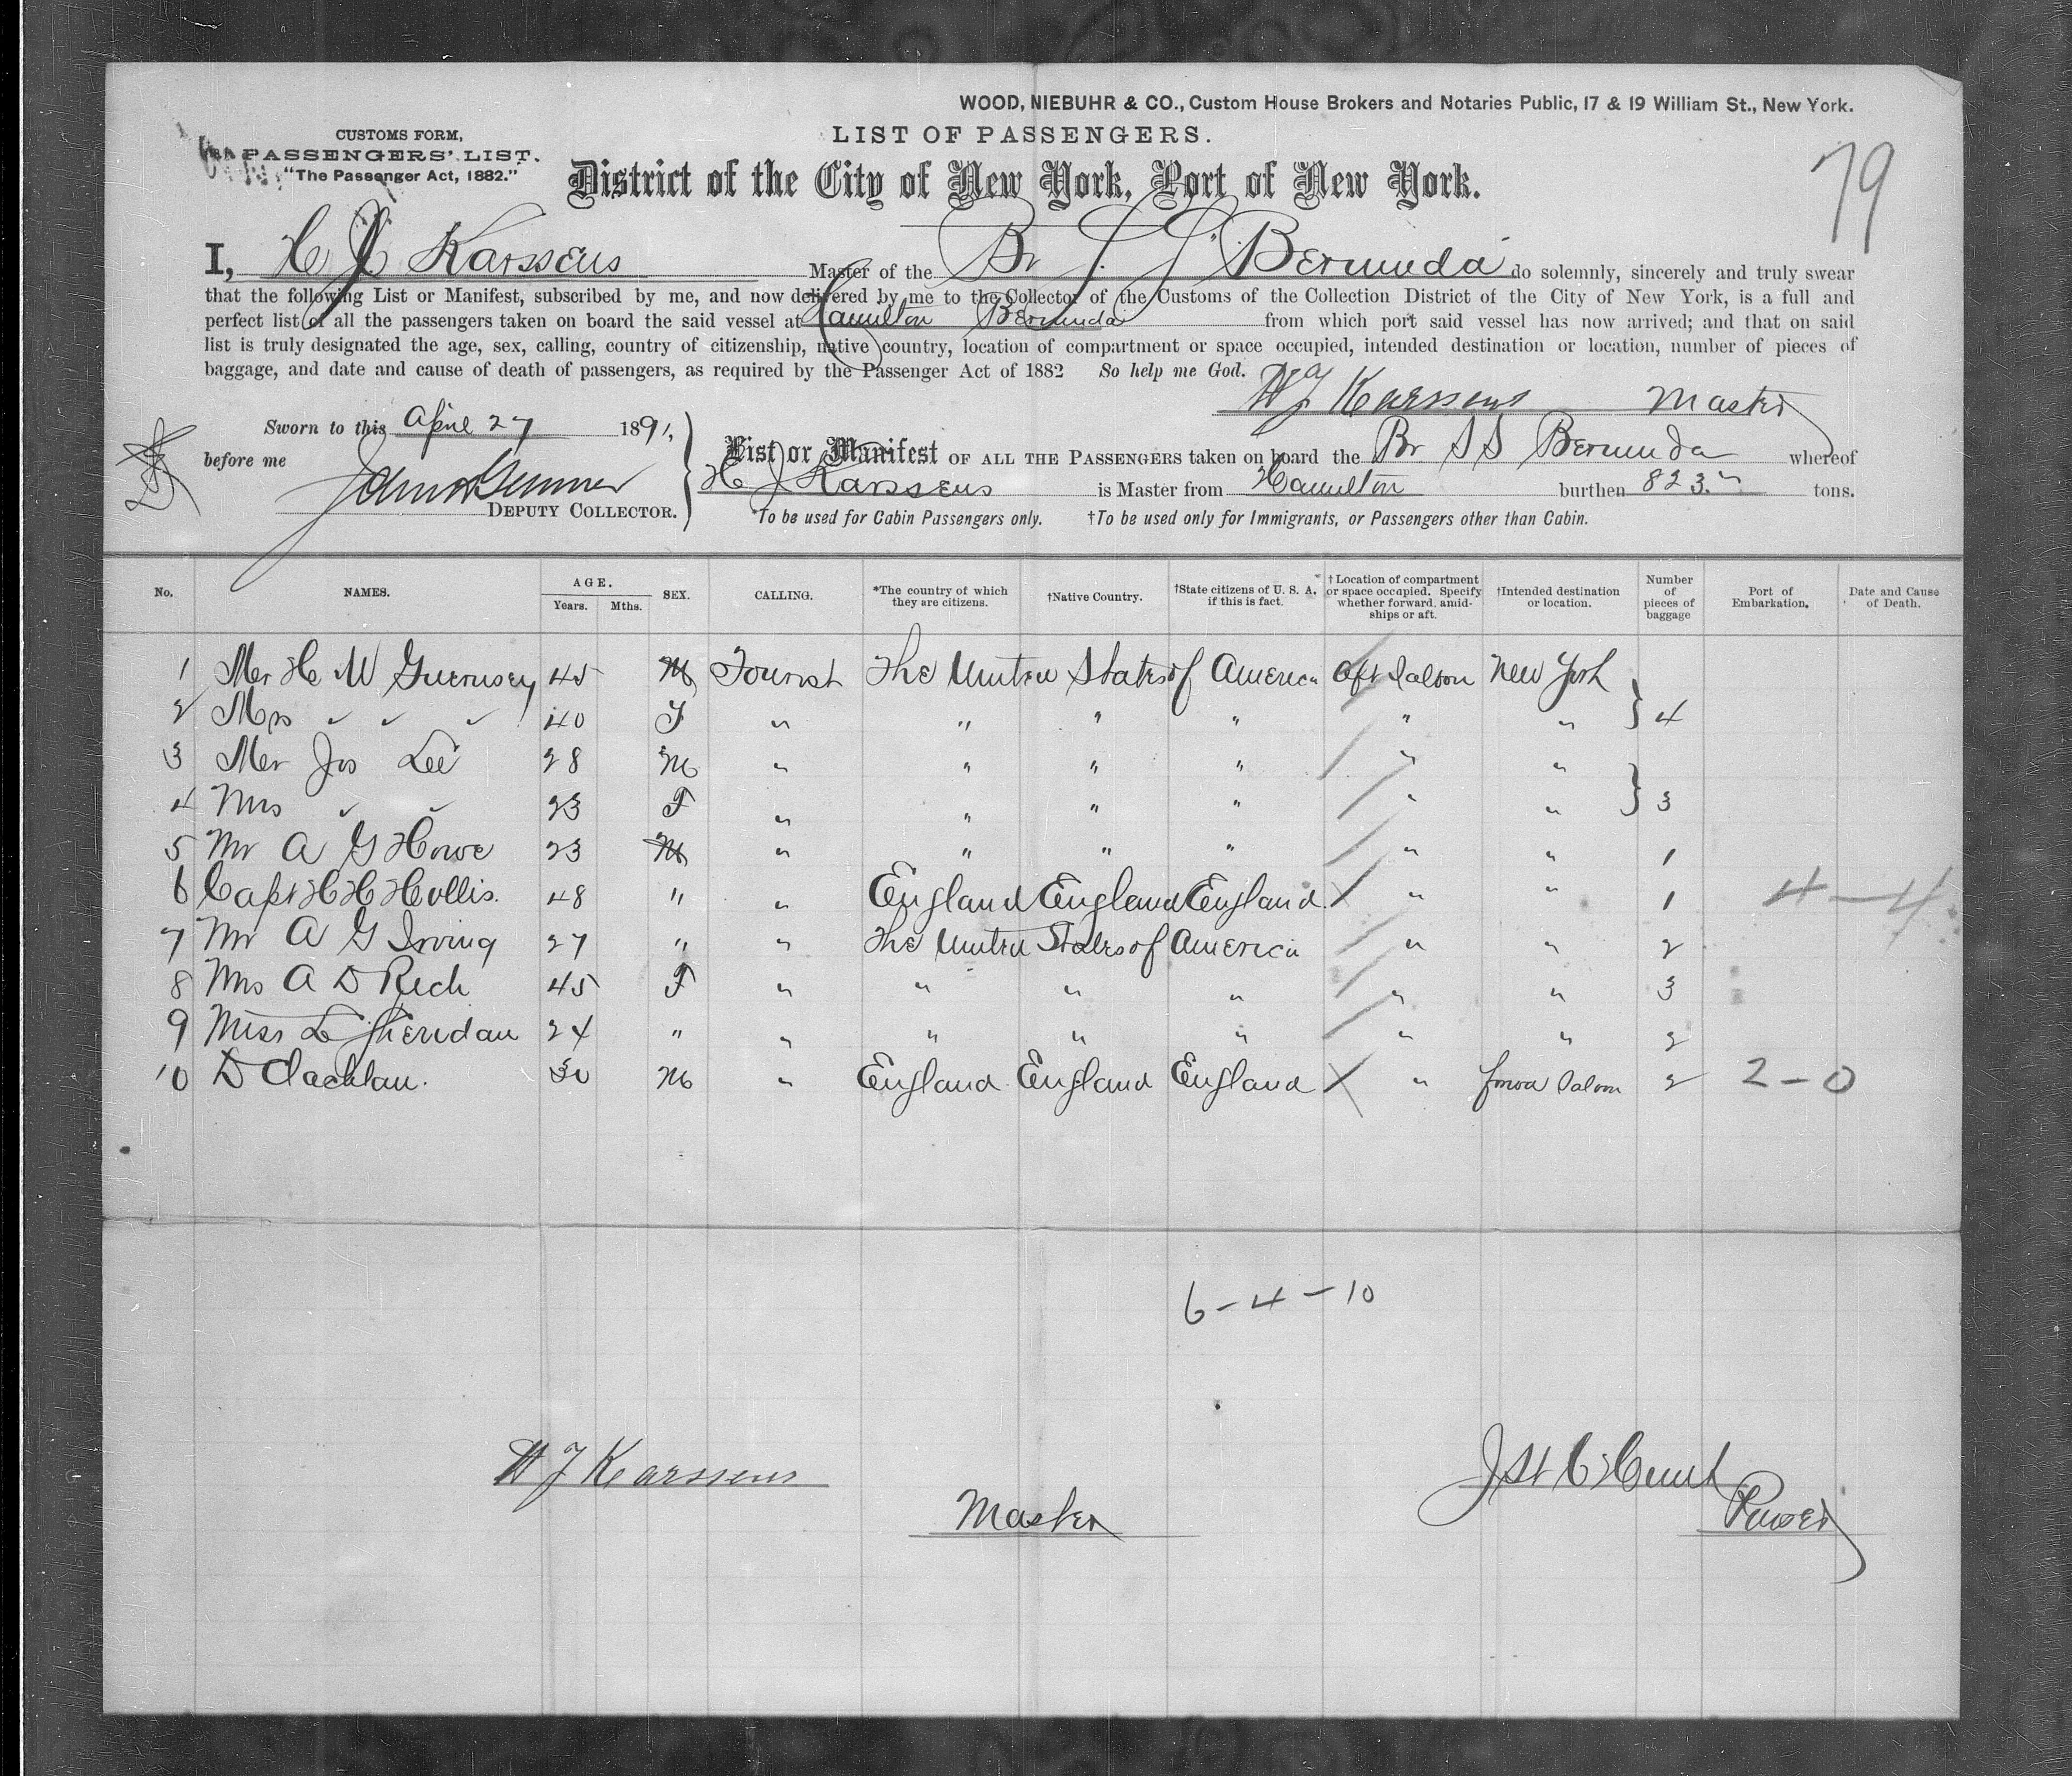 WOOD, NIEBUHR & CO., Custom House Brokers and Notaries Public, 17 & 19 William St., New York.
CUSTOMS FORM,
PASSENGERS' LIST.
"The Passenger Act, 1882."
LIST OF PASSENGERS.
District of the City of New York, Port of New York.
79
I, H J Karssens Master of the Br S. S. Bermuda do solemnly, sincerely and truly swear
that the following List or Manifest, subscribed by me, and now delivered by me to the Collector of the Customs of the Collection District of the City of New York, is a full and
perfect list of all the passengers taken on board the said vessel at Hamilton Bermuda from which port said vessel has now arrived; and that on said
list is truly designated the age, sex, calling, country of citizenship, native country, location of compartment or space occupied, intended destination or location, number of pieces of
baggage, and date and cause of death of passengers, as required by the Passenger Act of 1882 So help me God.
H J Karssens Master
Sworn to this April 27 1891,
before me
DEPUTY COLLECTOR.
List or Manifest OF ALL THE PASSENGERS taken on board the Br S S Bermuda whereof
H J Karssens is Master from Hamilton burthen 823 tons.
*To be used for Cabin Passengers only. †To be used only for Immigrants, or Passengers other than Cabin.
No. NAMES. AGE. Years. Mths. SEX. CALLING. *The country of which they are citizens. †Native Country. †State citizens of U. S. A. if this is fact. †Location of compartment or space occupied. Specify whether forward, amidships or aft. †Intended destination or location. Number of pieces of baggage Port of Embarkation. Date and Cause of Death.
1 Mr H W Guernsey 45 M Tourist The United States of America Aft Saloon New York
2 Mrs " " " 40 F " " " " " " } 4
3 Mr Jos Lee 28 M " " " " " "
4 Mrs " " 23 F " " " " " " } 3
5 Mr A G Howe 23 M " " " " " " 1
6 Capt H H Hollis. 48 " " England England England " " 1 4-4
7 Mr A G Irving 27 " " The United States of America " " 2
8 Mrs A D Rech 45 F " " " " " " 3
9 Miss L Sheridan 24 " " " " " " " 2
10 D Clachlan. 30 M " England England England " forwd Saloon 2 2-0
6-4-10
H J Karssens
Master